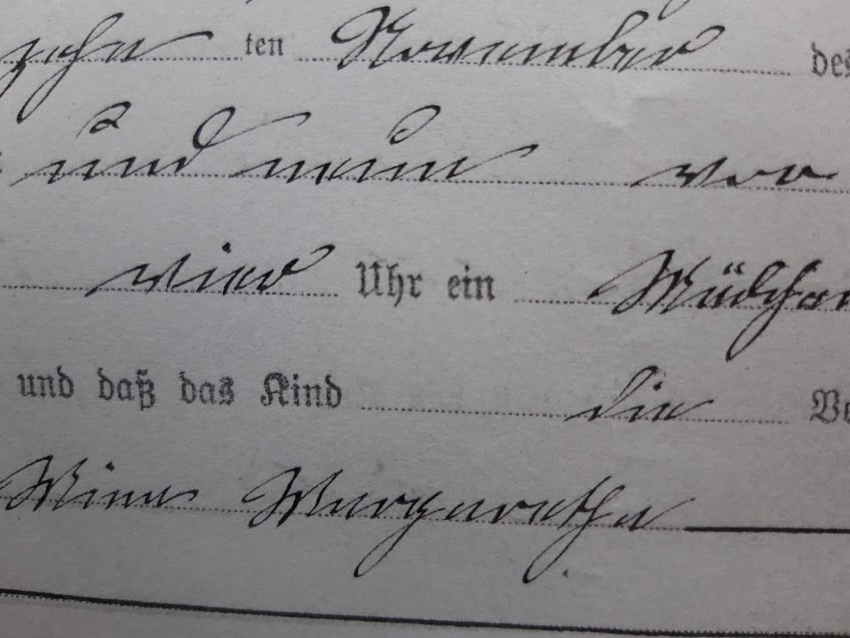 zehn ten November des
und neun vor
vier Uhr ein Mädchen
und daß das Kind die Vo
Mina Margaretha